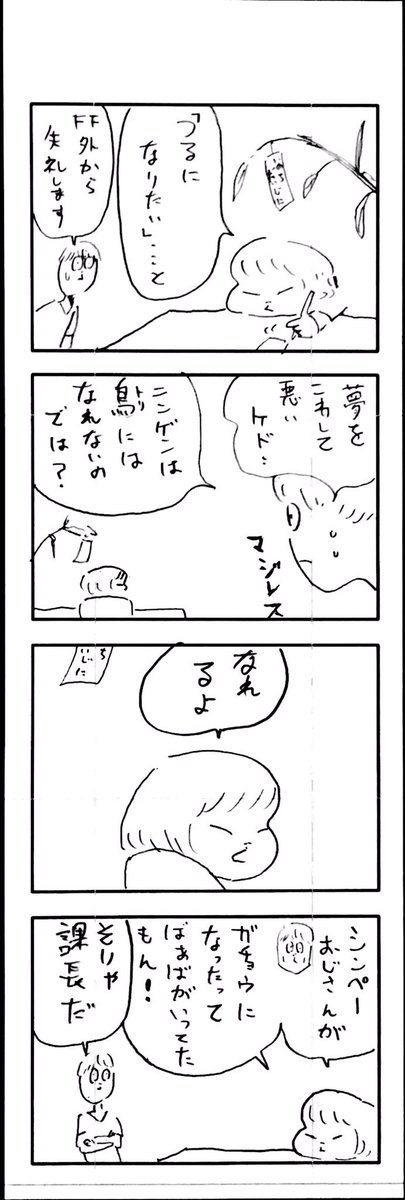 「つるに
なりたい」…と
FF外から
失礼します
夢を
こわして
悪い
ケド…
マジレス
ニンゲンは
鳥には
トリ
なれないの
では？
なれ
るよ
シンペー
おじさんが
ガチョウに
なったって
ばぁばがいってた
もん！
そりゃ
課長だ